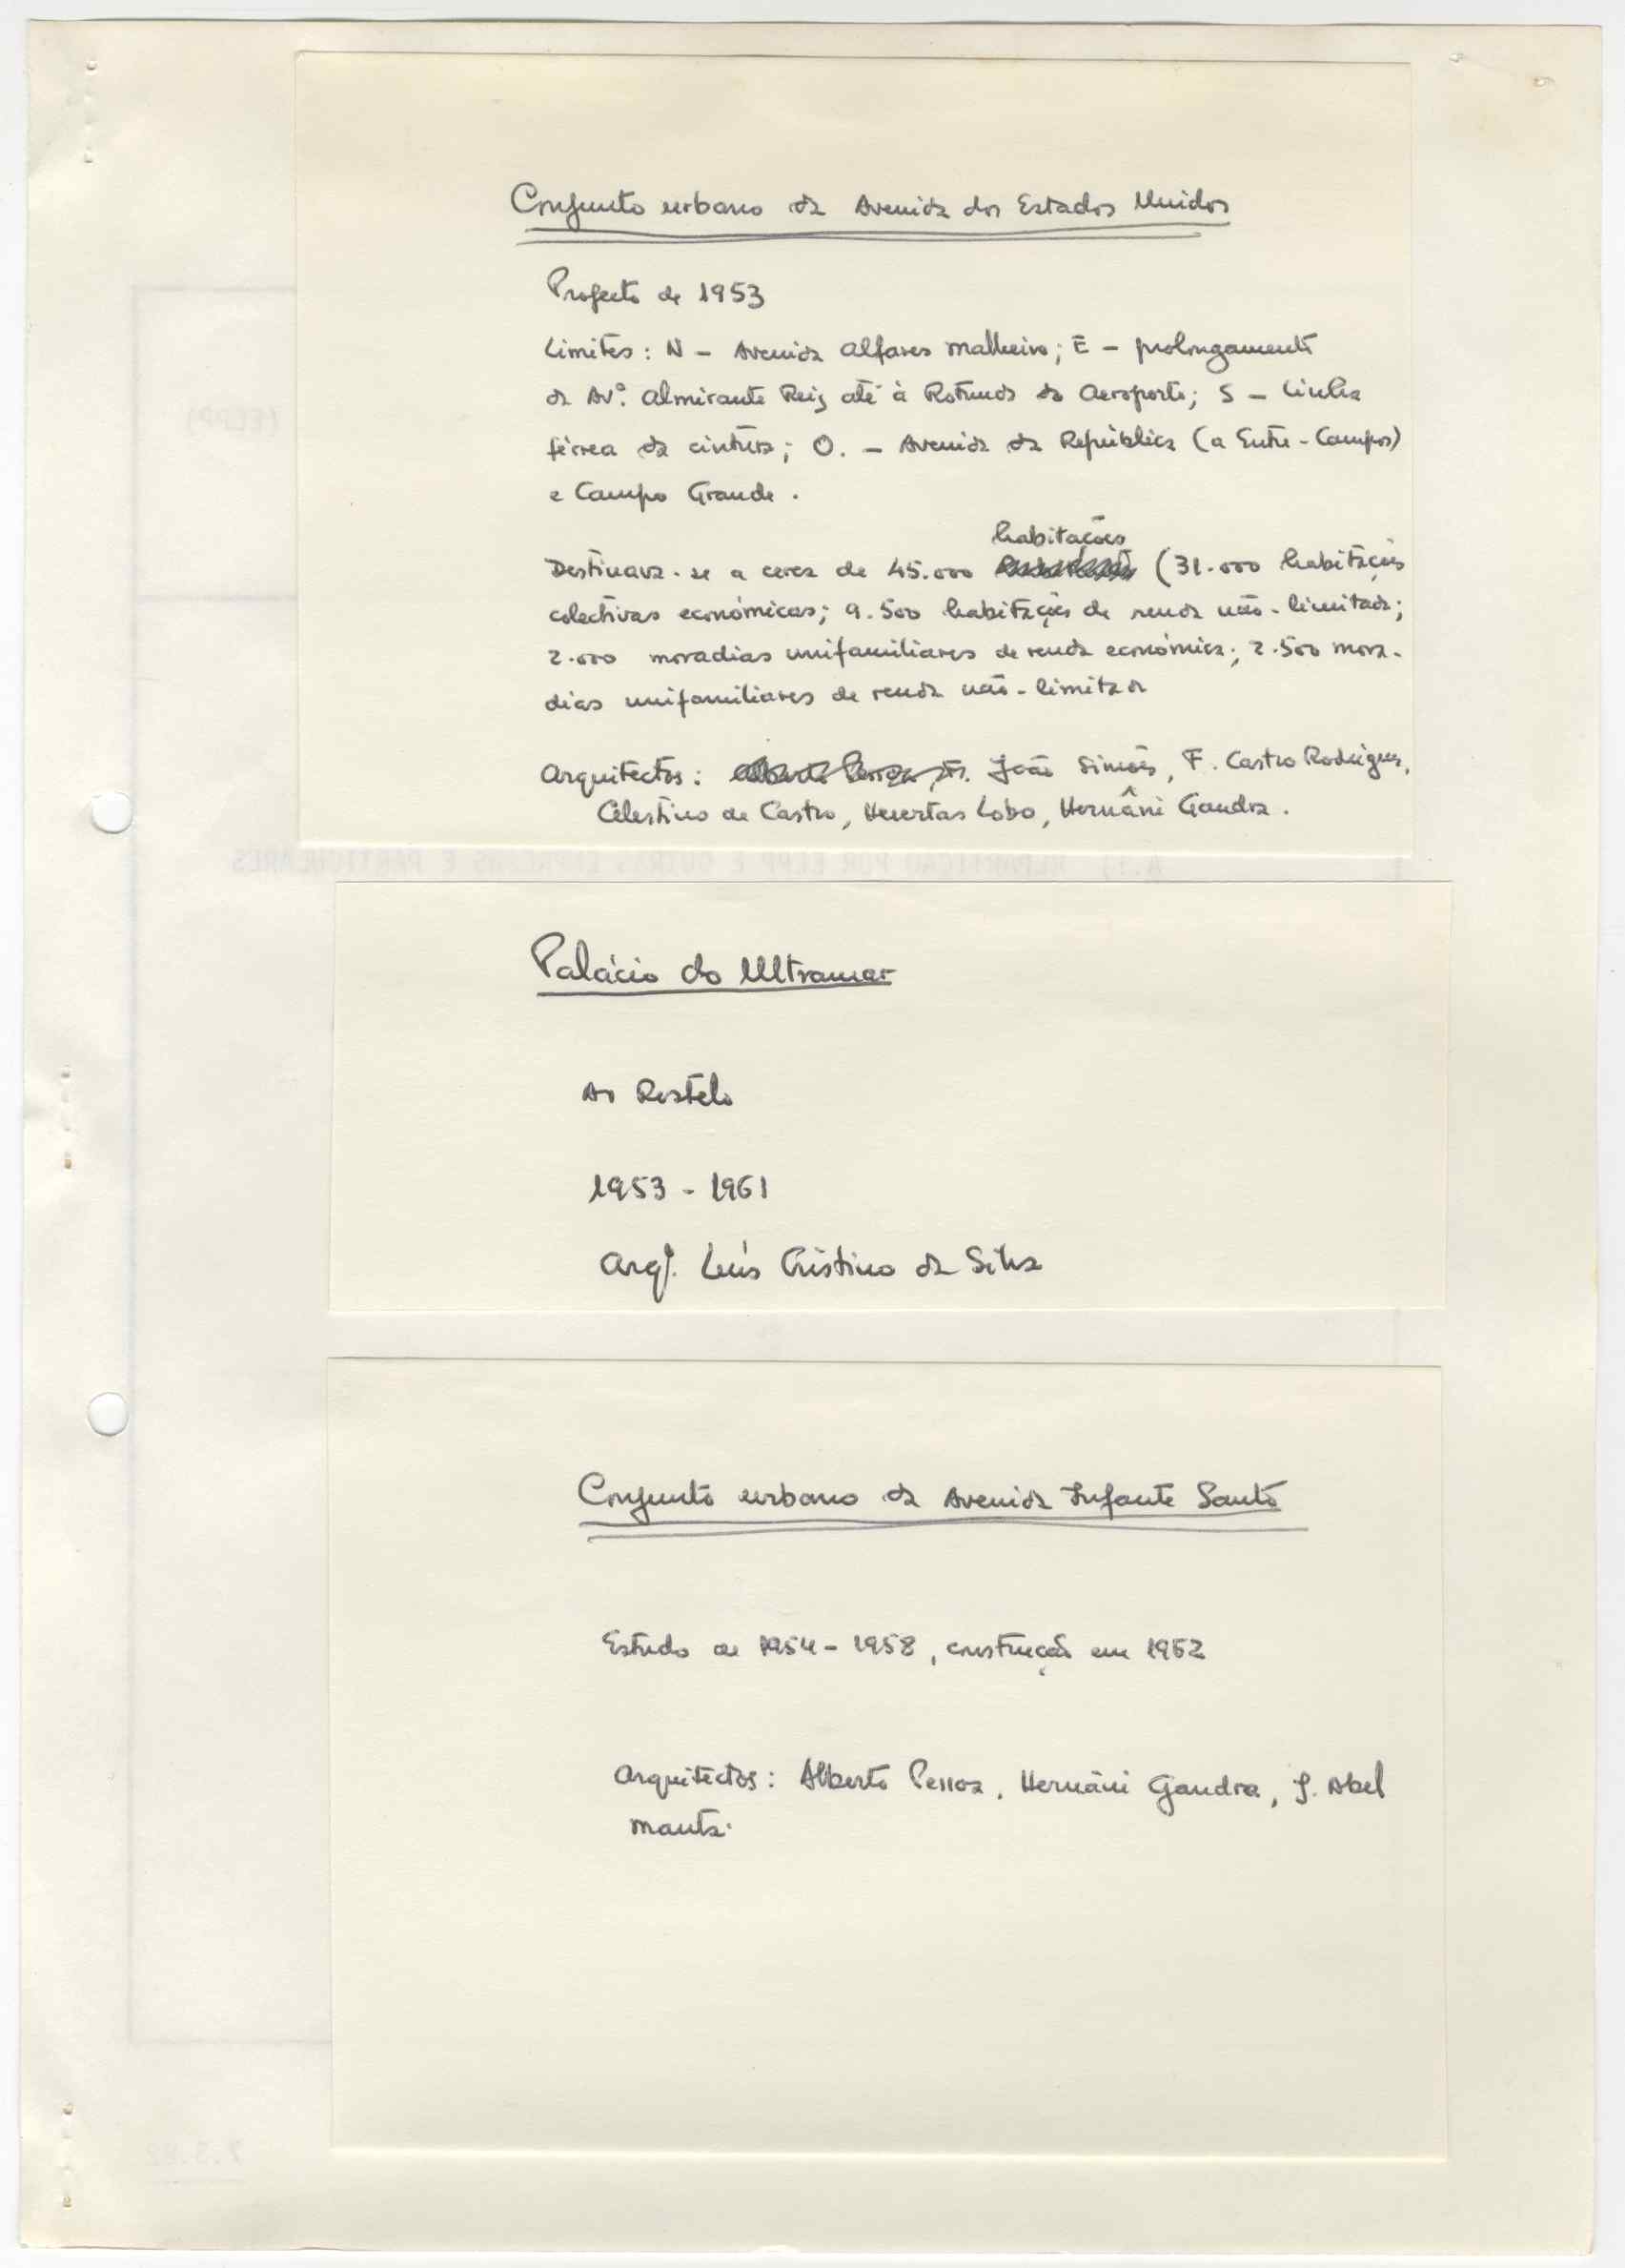 Conjunto urbano da Avenida dos Estados Unidos
Projecto de 1953
Limites: N – Avenida Alferes Malheiro; E – prolongamento
da Avª. Almirante Reis até à Rotunda do Aeroporto; S – Linha
férrea da cintura; O. – Avenida da República (a Entre-Campos)
e Campo Grande.
habitações
Destinava-se a cerca de 45.000 (31.000 habitações
colectivas económicas; 9.500 habitações de renda não-limitada;
2.000 moradias unifamiliares de renda económica; 2.500 mora-
dias unifamiliares de renda não-limitada
Arquitectos: João Simões, F. Castro Rodrigues,
Celestino de Castro, Huertas Lobo, Hernâni Gandra.
A.1) REPARTIÇÃO POR ELPP E OUTRAS EMPRESAS E PARTICULARES
(ELPP)
Palácio do Ultramar
Ao Restelo
1953 - 1961
Arqº. Luís Cristino da Silva
Conjunto urbano da Avenida Infante Santo
Estudo de 1954 - 1958, construção em 1962
Arquitectos: Alberto Pessoa, Hernâni Gandra, J. Abel
Manta.